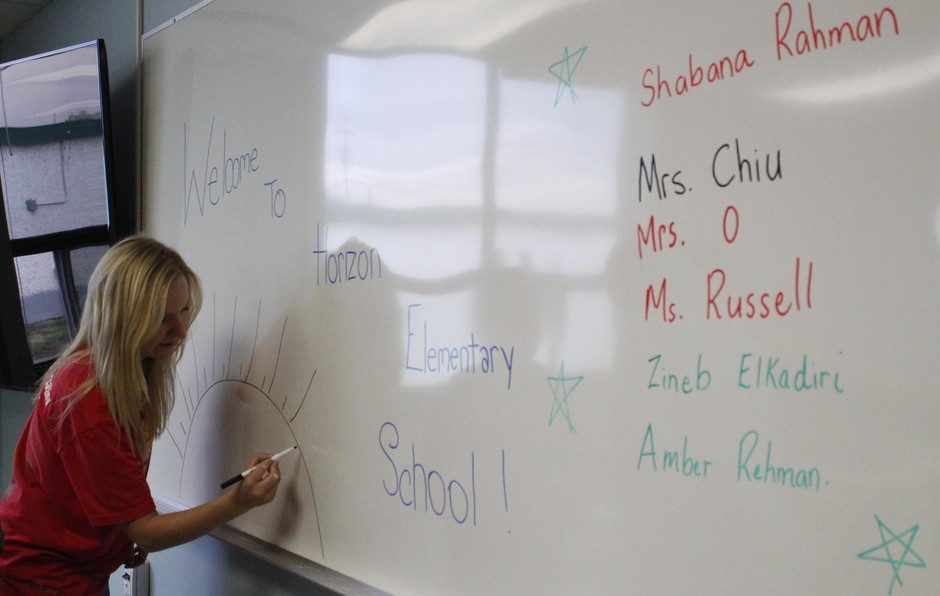 Welcome
To
Horizon
Elementary
School!
Shabana Rahman
Mrs. Chiu
Mrs. O
Ms. Russell
Zineb ElKadiri
Amber Rehman.